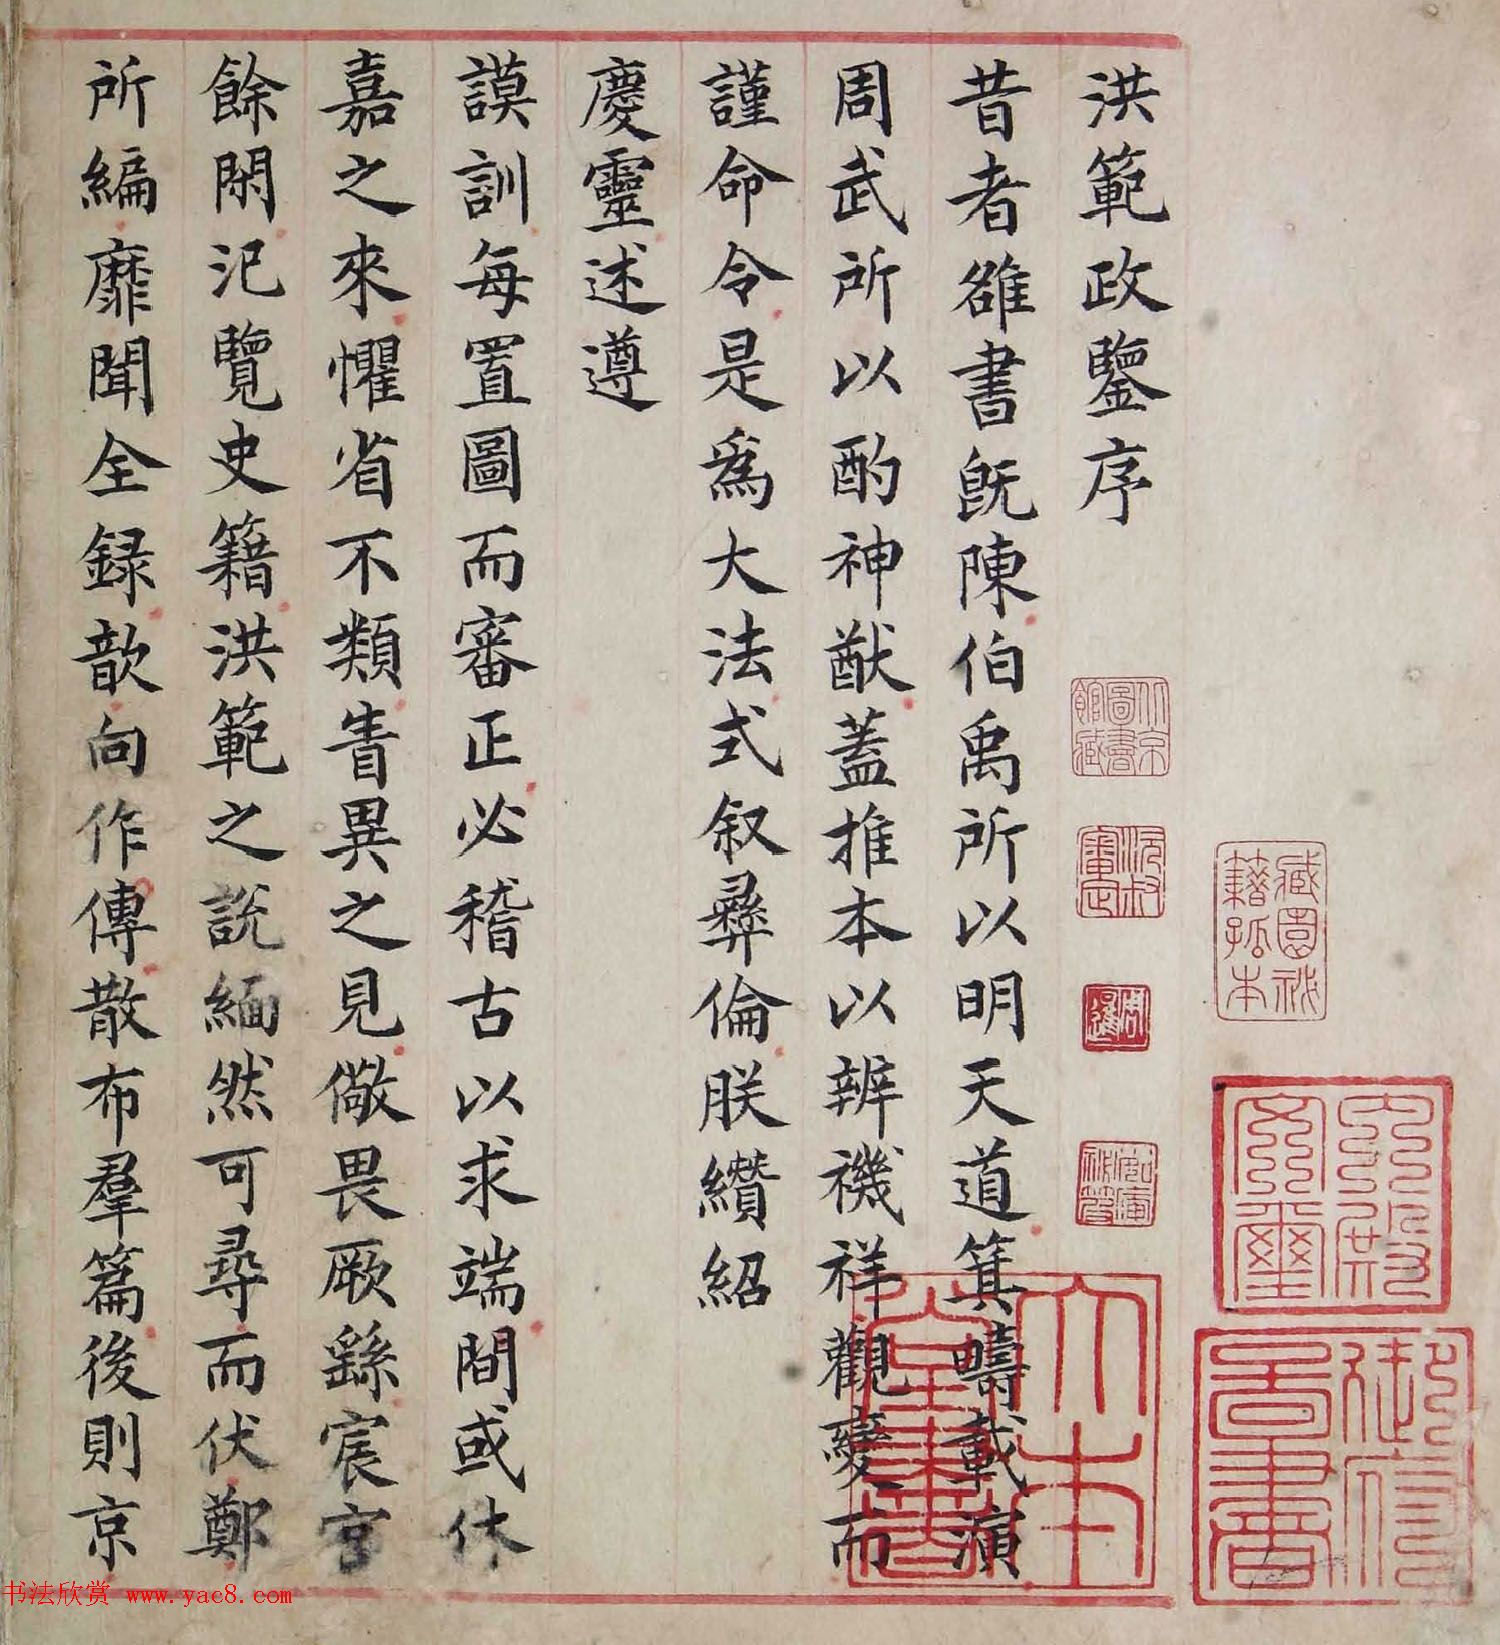 洪範政鑒序
昔者雒書既陳伯禹所以明天道箕疇載演
周武所以酌神猷蓋推本以辨禨祥觀變而
謹命令是爲大法式叙彝倫朕纘紹
慶靈述遵
謨訓每置圖而審正必稽古以求端間或休
嘉之來懼省不類眚異之見儆畏厥繇宸宫
餘閑汜覽史籍洪範之説緬然可尋而伏鄭
所編靡聞全録歆向作傳散布羣篇後則京
北京圖書館藏
周暹
藏園秘籍孤本
御府圖書
书法欣赏 www.yac8.com